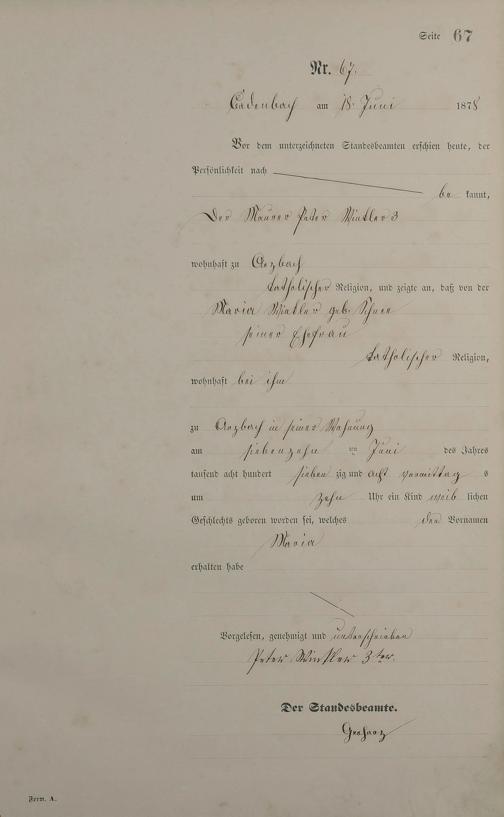 Seite 67
Nr. 67.
Cadenbach am 18 Juni 1878
Vor dem unterzeichneten Standesbeamten erschien heute, der
Persönlichkeit nach
be kannt,
Der Maurer Peter Winkler 3
wohnhaft zu Arzbach
katholischer Religion, und zeigte an, daß von der
Maria Winkler geb.
seiner Ehefrau
katholischer Religion,
wohnhaft bei ihm
zu Arzbach in seiner Wohnung
am siebenzehn ten Juni des Jahres
tausend acht hundert sieben zig und acht vormittag s
um zehn Uhr ein Kind weib lichen
Geschlechts geboren worden sei, welches den Vornamen
Maria
erhalten habe
Vorgelesen, genehmigt und unterschrieben
Peter Winkler 3ter.
Der Standesbeamte.
Form. A.